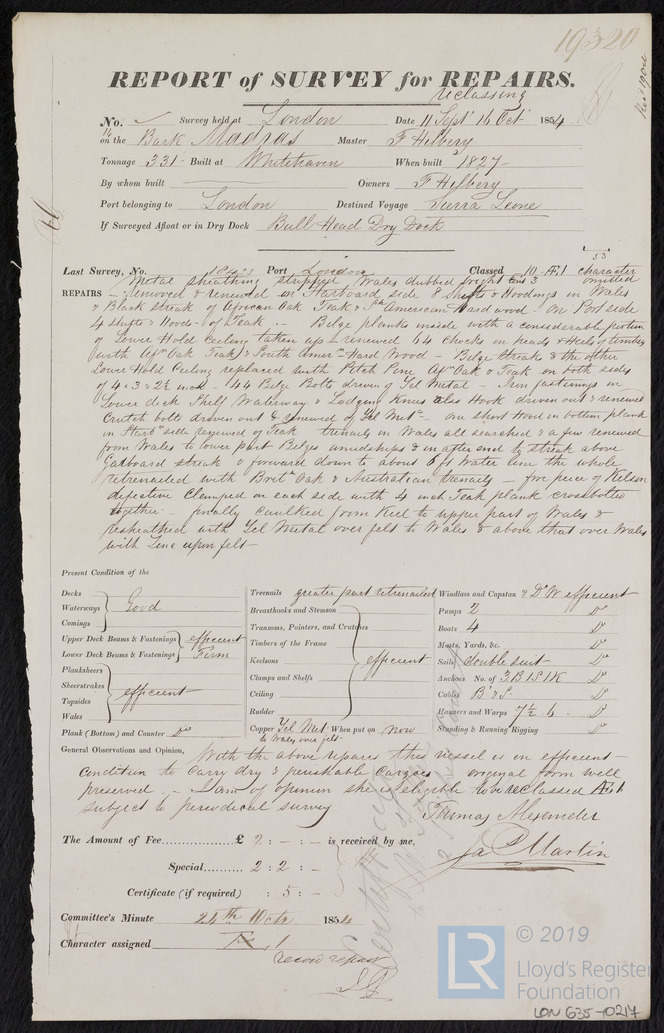 19320
REPORT of SURVEY for REPAIRS.
reclassing
No. Survey held at London Date 11 Sept 16 Oct 1854
on the Bark Madras Master F Helbery
Tonnage 331 Built at Whitehaven When built 1827
By whom built Owners F Helbery
Port belonging to London Destined Voyage Sierra Leone
If Surveyed Afloat or in Dry Dock Bull Head Dry Dock
53
Last Survey, No. Port London Classed 10 Æ1 character
omitted
Metal sheathing stripped Wales dubbed bright
REPAIRS removed & renewed on Starboard side 8 shifts & Hoodings in Wales
& Black streak of African Oak Teak & Sth American Hard wood on Port side
4 shifts & Hoods of Teak Belge planks inside with a considerable portion
of Lower Hold Ceiling taken up renewed 64 chocks on heads & Heels of timbers
with Afn Oak Teak & South Amern Hard Wood Belge streak & the other
Lower Hold Ceiling replaced with Pitch Pine Afn Oak & Teak on both sides
of 4.3 & 2½ inch 44 Belge Bolts driven of Yel Metal Iron fastenings in
Lower deck Shelf Waterway & Lodging Knees also Hook driven out & renewed
Crutch bolts driven out & renewed of Yel Met one short Hood in bottom plank
in Starbd side renewed of Teak trenails in Wales all searched & a few renewed
from Wales to lower part Belges amidships & in after end to streak above
Garboard streak & forward down to about 6 ft Water line the whole
retrenailed with Brit Oak & Australian trenails fore piece of Kelson
defective Clamped on each side with 4 inch Teak plank crossbolted
together finally caulked from Keel to upper part of Wales &
resheathed with Yel Metal over felt to Wales & above that over Wales
with Zinc upon felt
Present Condition of the
Decks
Waterways Good
Comings
Upper Deck Beams & Fastenings efficient
Lower Deck Beams & Fastenings Firm
Planksheers
Sheerstrakes
Topsides efficient
Wales
Plank (Bottom) and Counter Do
Treenails greater part retrenailed
Breasthooks and Stemson
Transoms, Pointers, and Crutches
Timbers of the Frame
Keelsons efficient
Clamps and Shelfs
Ceiling
Rudder
Copper Yel Met When put on now
to Wales over felt
Windlass and Capston & D W efficient
Pumps 2 Do
Boats 4 Do
Masts, Yards, &c. Do
Sails double suit Do
Anchors No. of 3 B 1 S 1 K Do
Cables B & S Do
Hawsers and Warps 7½ 6 Do
Standing & Running Rigging Do
General Observations and Opinion, With the above repairs this vessel is in efficient
condition to carry dry & perishable cargoes original form well
preserved I am of opinion she is eligible to be reclassed Æ1
subject to periodical survey
Thomas Alexander
Jas Martin
The Amount of Fee £ 2 : - : - is received by me,
Special 2 : 2 : -
Certificate (if required) : 5 : -
Committee's Minute 24th Octr 1854
Character assigned Æ 1
record repair
© 2019
LR
Lloyd's Register
Foundation
LON 635-0217